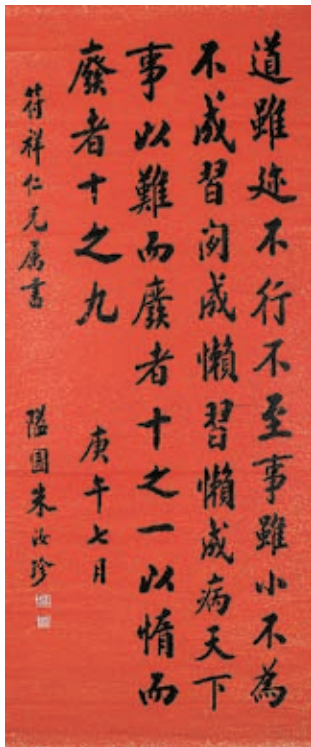 道雖迩不行不至事雖小不為
不成習閑成懶習懶成病天下
事以難而廢者十之一以惰而
廢者十之九
庚午七月
符祥仁兄属書
隘園朱汝珍